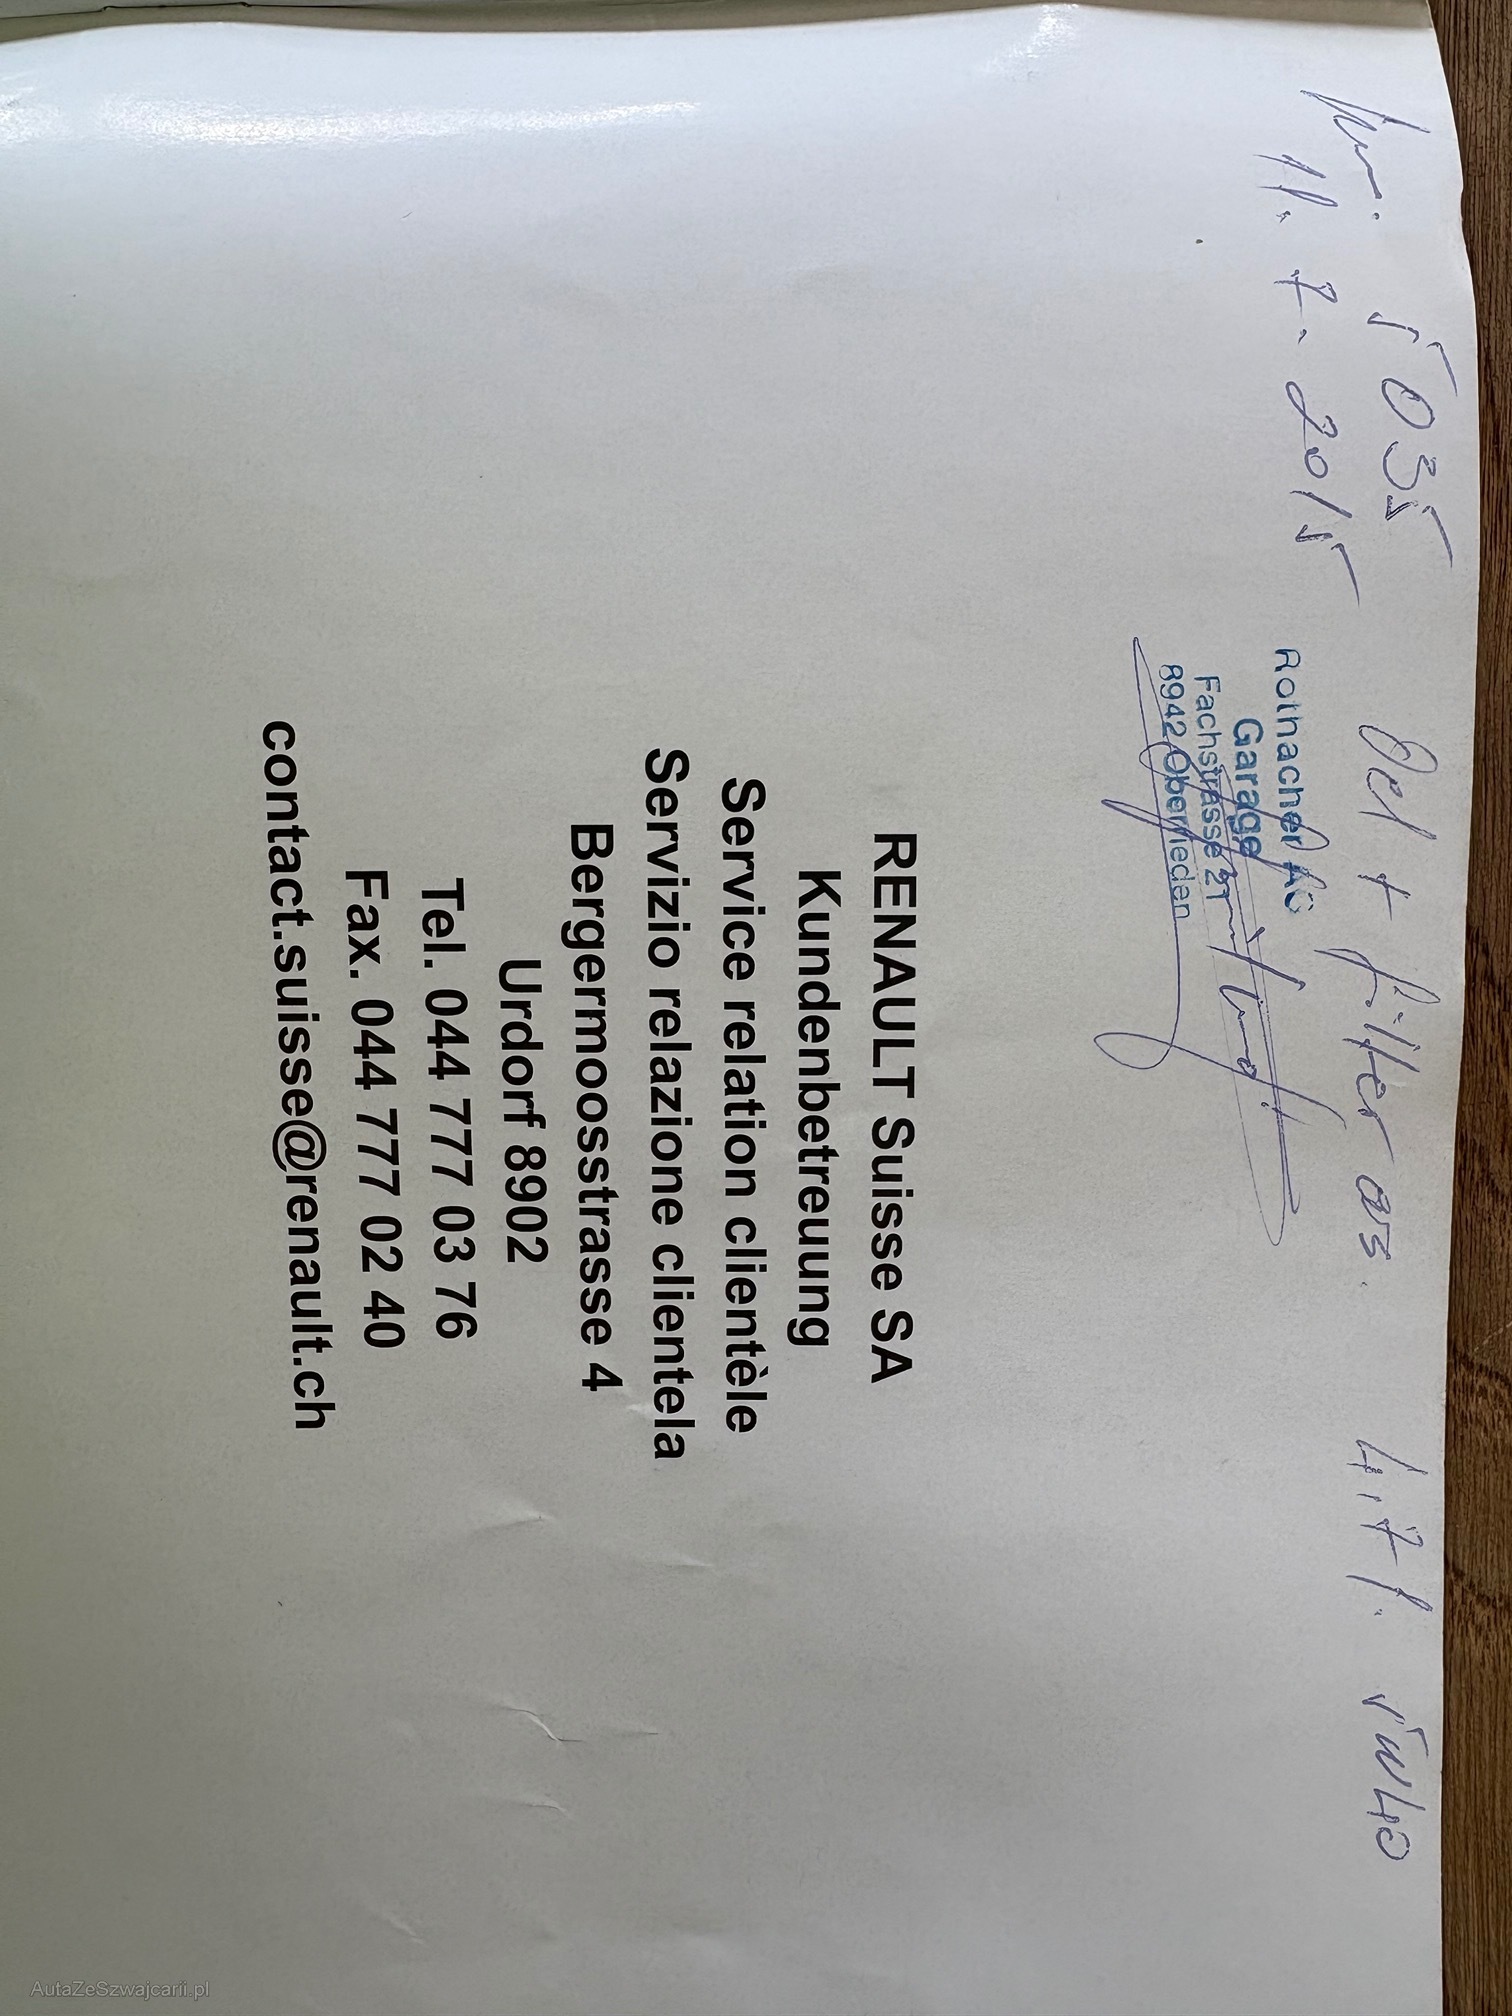 km. 5035 Oel + filter ers. 4,7 l. 5W40
11. 7. 2015
Rothacher AG
Garage
Fachstrasse 21
8942 Oberrieden
RENAULT Suisse SA
Kundenbetreuung
Service relation clientèle
Servizio relazione clientela
Bergermoosstrasse 4
Urdorf 8902
Tel. 044 777 03 76
Fax. 044 777 02 40
contact.suisse@renault.ch
AutaZeSzwajcarii.pl